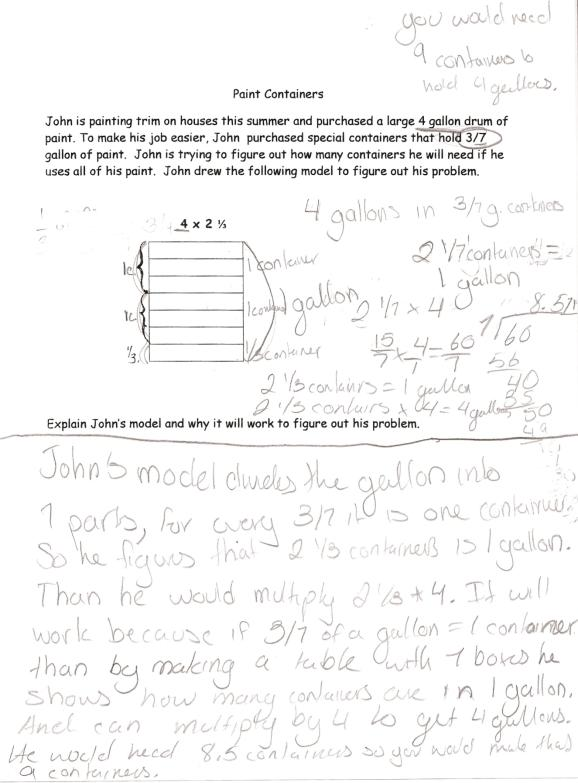 you would need
9 containers to
hold 4 gallons.
Paint Containers
John is painting trim on houses this summer and purchased a large 4 gallon drum of
paint. To make his job easier, John purchased special containers that hold 3/7
gallon of paint. John is trying to figure out how many containers he will need if he
uses all of his paint. John drew the following model to figure out his problem.
4 gallons in 3/7 g. containers
4 x 2 ⅓
1c
1 container
1c
1 gallon
1/3
1/3 container
2 1/7 containers =
1 gallon
2 1/7 x 4
15/7 x 4/1 = 60/7
8.57
7 60
56
40
35
50
49
2 1/3 contairs = 1 gallon
2 1/3 contairs x 4 = 4 gallons
Explain John's model and why it will work to figure out his problem.
John's model divides the gallon into
7 parts, for every 3/7 it is one container.
So he figures that 2 1/3 containers is 1 gallon.
Than he would multiply 2 1/3 * 4. It will
work because if 3/7 of a gallon = 1 container
than by making a table with 7 boxes he
shows how many containers are in 1 gallon.
And can multiply by 4 to get 4 gallons.
He would need 8.5 containers so you would make that
9 containers.